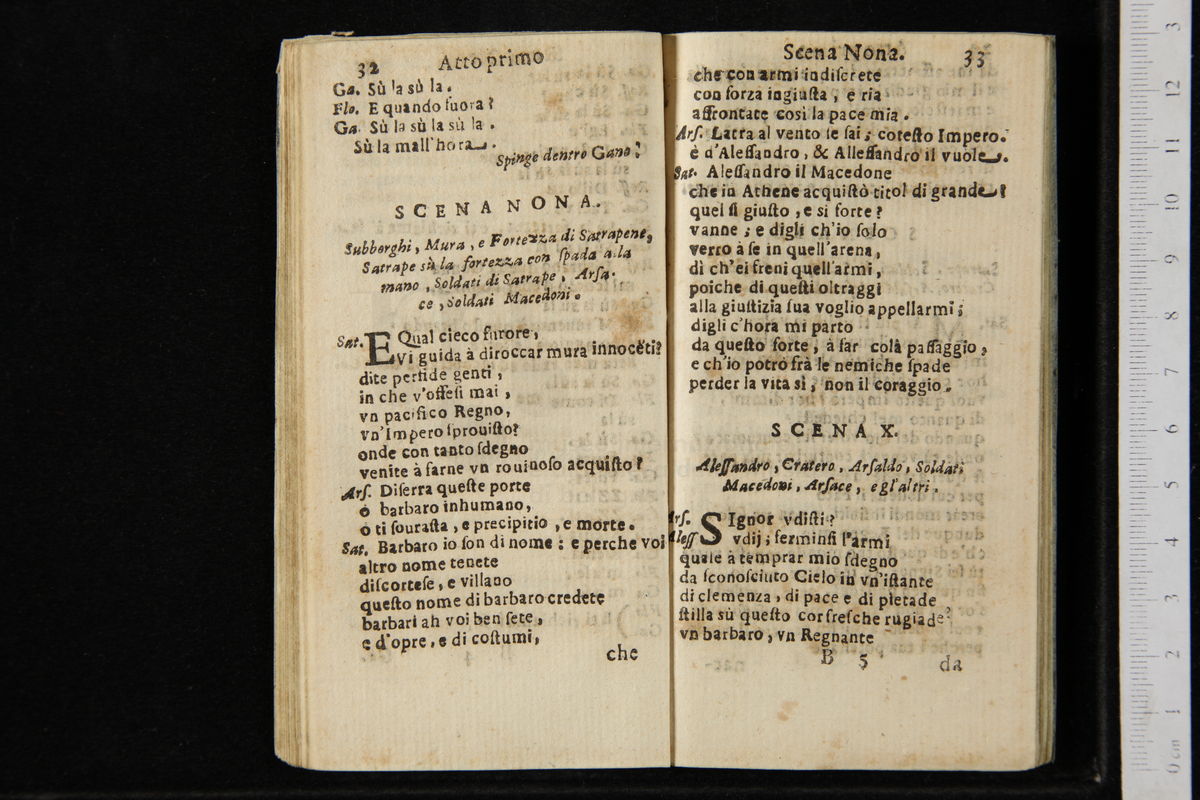 32 Atto primo
Ga. Sù la sù la.
Flo. E quando fuora?
Ga. Sù la sù la sù la.
Sù la mall'hora.
Spinge dentro Gano:
SCENA NONA.
Subborghi, Mura, e Fortezza di Satrapene,
Satrape sù la fortezza con ſpada alla
mano, Soldati di Satrape, Arſa-
ce, Soldati Macedoni.
Sat. E Qual cieco furore,
Vi guida à diroccar mura innocēti?
dite perfide genti,
in che v'offeſi mai,
vn pacifico Regno,
vn'Impero ſprouiſto?
onde con tanto ſdegno
venite à farne vn rouinoſo acquiſto?
Arſ. Diſerra queſte porte
ò barbaro inhumano,
ò ti ſouraſta, e precipitio, e morte.
Sat. Barbaro io ſon di nome: e perche voi
altro nome tenete
diſcorteſe, e villano
queſto nome di barbaro credete
barbari ah voi ben ſete,
e d'opre, e di coſtumi,
che
Scena Nona. 33
che con armi indiſcrete
con forza ingiuſta, e ria
affrontate così la pace mia.
Arſ. Latra al vento ſe ſai; coteſto Impero.
è d'Aleſſandro, & Alleſſandro il vuole.
Sat. Aleſſandro il Macedone
che in Athene acquiſtò titol di grande?
quel ſi giuſto, e si forte?
vanne; e digli ch'io ſolo
verrò à ſe in quell'arena,
dì ch'ei freni quell'armi,
poiche di queſti oltraggi
alla giuſtizia ſua voglio appellarmi;
digli c'hora mi parto
da queſto forte, à far colà paſſaggio,
e ch'io potrò frà le nemiche ſpade
perder la vita sì, non il coraggio.
SCENA X.
Aleſſandro, Cratero, Arſaldo, Soldati
Macedoni, Arſace, e gl'altri.
Arſ. SIgnor vdiſti?
Aleſſ vdij; ferminſi l'armi
quale à temprar mio ſdegno
da ſconoſciuto Cielo in vn'iſtante
di clemenza, di pace e di pietade
ſtilla sù queſto cor freſche rugiade?
vn barbaro, vn Regnante
B 5 da
3
12
11
10
9
8
7
6
5
4
3
2
1
0 cm